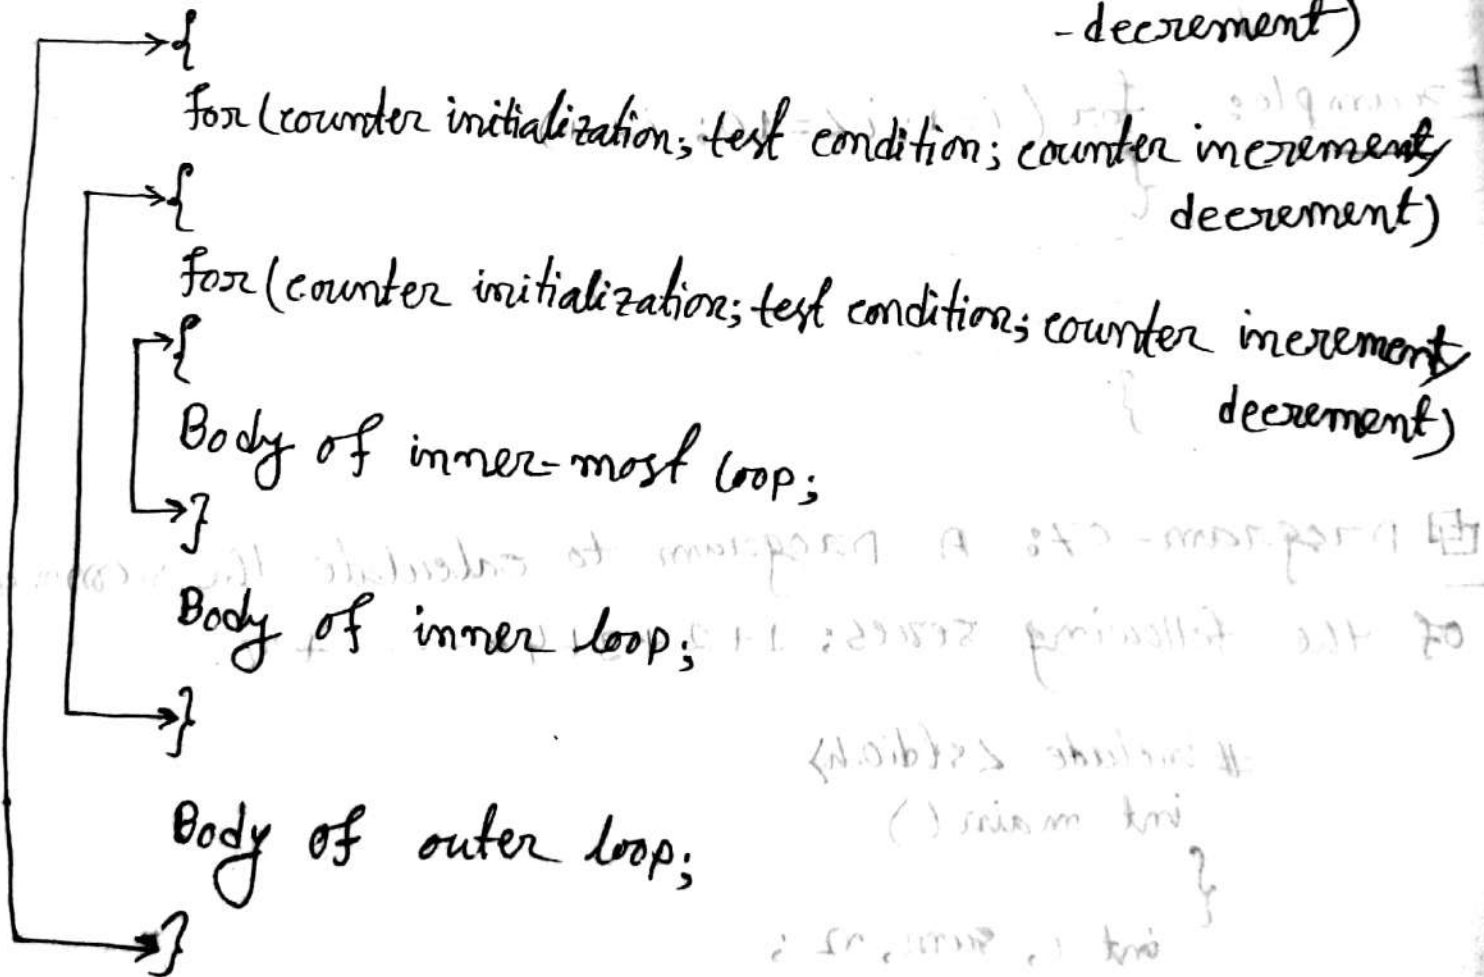 -decrement)
{
for(counter initialization; test condition; counter increment/
decrement)
{
for(counter initialization; test condition; counter increment/
decrement)
{
Body of inner-most loop;
}
Body of inner loop;
}
Body of outer loop;
}